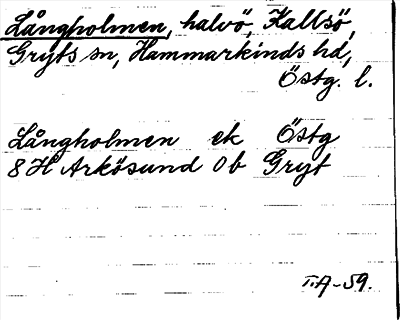 Långholmen, halvö, Kallsö,
Gryts sn, Hammarkinds hd,
Östg. l.
Långholmen ek Östg
8H Arkösund 0b Gryt
T.A-59.